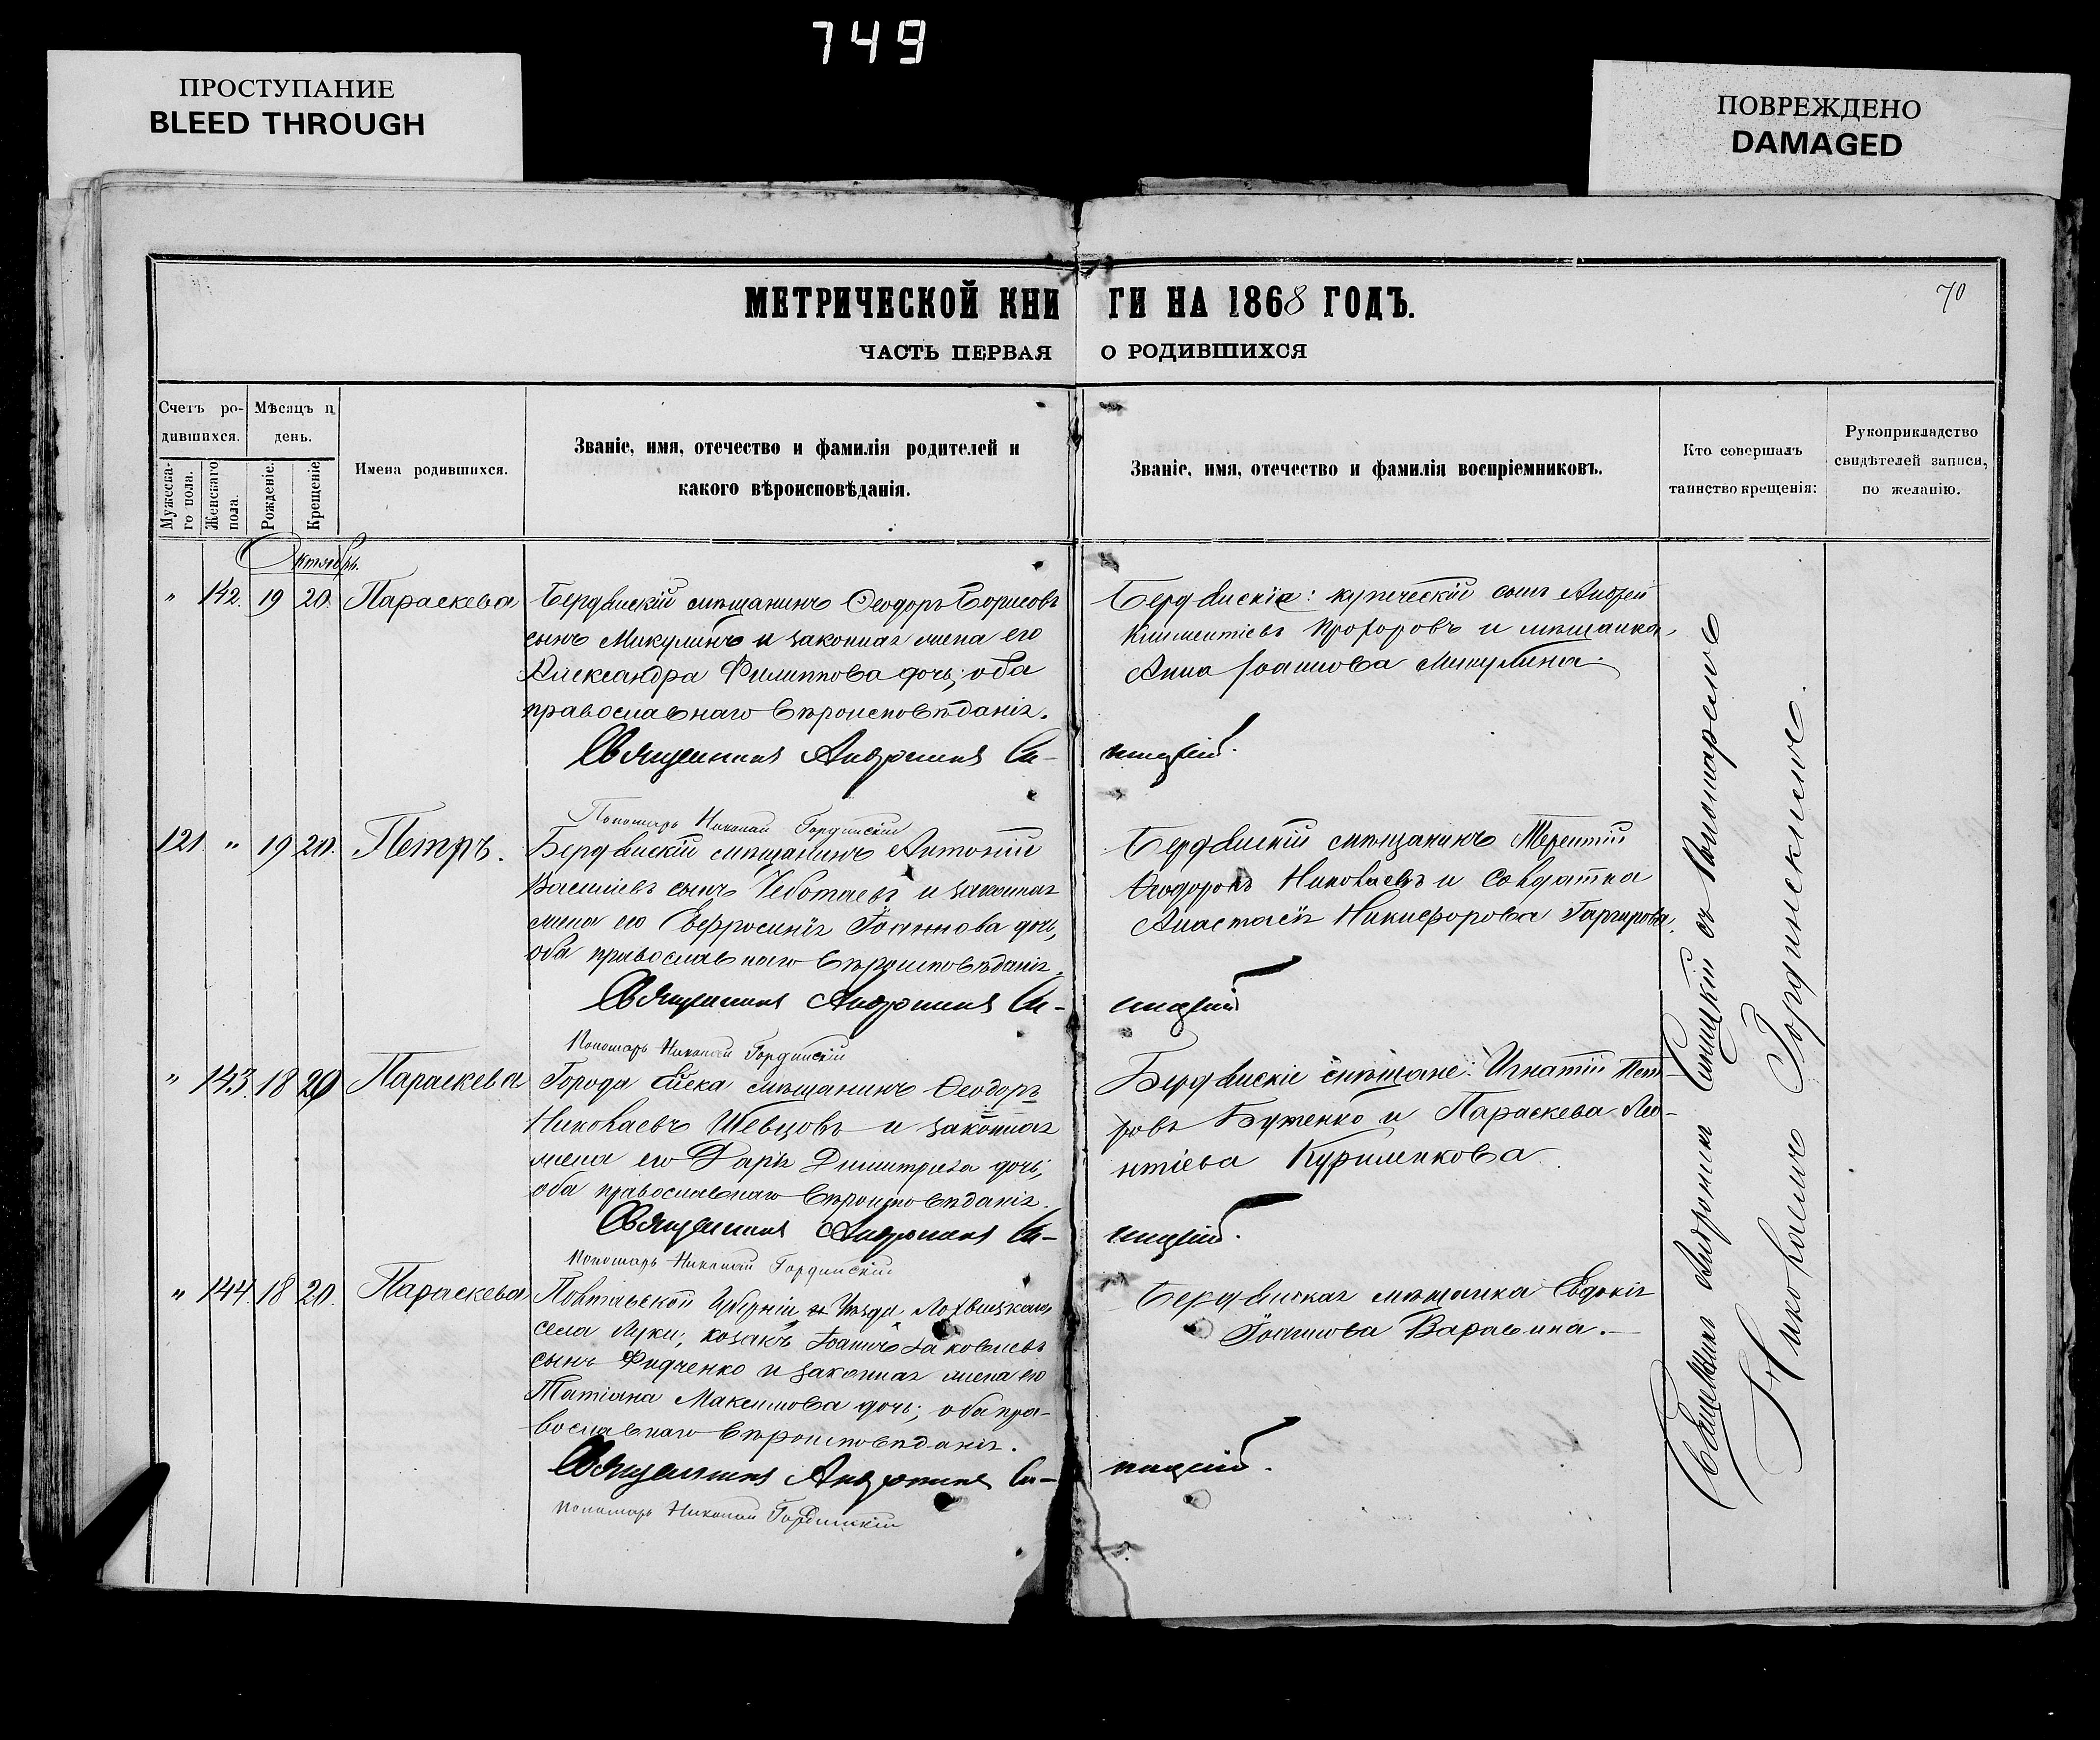 749
ПРОСТУПАНИЕ
BLEED THROUGH
ПОВРЕЖДЕНО
DAMAGED
МЕТРИЧЕСКОЙ КНИ ГИ НА 1868 ГОДЪ.
70
ЧАСТЬ ПЕРВАЯ О РОДИВШИХСЯ
Счетъ ро-
дившихся.
Мужеска-
го пола.
Женскаго
пола.
Мѣсяцъ и
день.
Рожденіе.
Крещеніе
Имена родившихся.
Званіе, имя, отечество и фамилія родителей и
какого вѣроисповѣданія.
Званіе, имя, отечество и фамилія воспріемниковъ.
Кто совершалъ
таинство крещенія:
Рукоприкладство
свидѣтелей записи,
по желанію.
Октябрь.
" 142. 19 20. Параскева
Бердянскій мѣщанинъ Ѳеодоръ Борисовъ
сынъ Микулинъ и законная жена его
Александра Филиппова дочь; оба
православнаго вѣроисповѣданія.
Бердянскіе: купеческій сынъ Андрей
Климентіевъ Прохоровъ и мѣщанка,
Анна Іоаннова Микулина.
Священникъ Андроникъ Си- ницкій.
Пономарь Николай Гординскій
121. " 19 20. Петръ.
Бердянскій мѣщанинъ Антоній
Васильевъ сынъ Чеботаевъ и законная
жена его Евфросинія Іоаннова дочь,
оба православнаго вѣроисповѣданія.
Бердянскій мѣщанинъ Терентій
Ѳеодоровъ Николаевъ и солдатка
Анастасія Никифорова
Священникъ Андроникъ Си- ницкій
Пономарь Николай Гординскій
" 143. 18 20 Параскева
Города Ейска мѣщанинъ Ѳеодоръ
Николаевъ Шевцовъ и законная
жена его Дарія Димитріева дочь;
оба православнаго вѣроисповѣданія.
Бердянскіе мѣщане: Игнатій Пет-
ровъ Бутенко и Параскева Лео-
нтіева Куриленкова.
Священникъ Андроникъ Си- ницкій.
Пономарь Николай Гординскій
" 144. 18 20. Параскева
Полтавской Губерніи Уѣзда Лохвицкаго
села Луки; козакъ Іоаннъ Іаковлевъ
сынъ Фидченко и законная жена его
Татіана Максимова дочь; оба пра-
вославнаго вѣроисповѣданія.
Бердянская мѣщанка Евдокія
Іоаннова Варавина.
Священникъ Андроникъ Си- ницкій.
Пономарь Николай Гординскій
Священникъ Андроникъ Синицкій съ Пономаремъ
Николаемъ Гординскимъ.